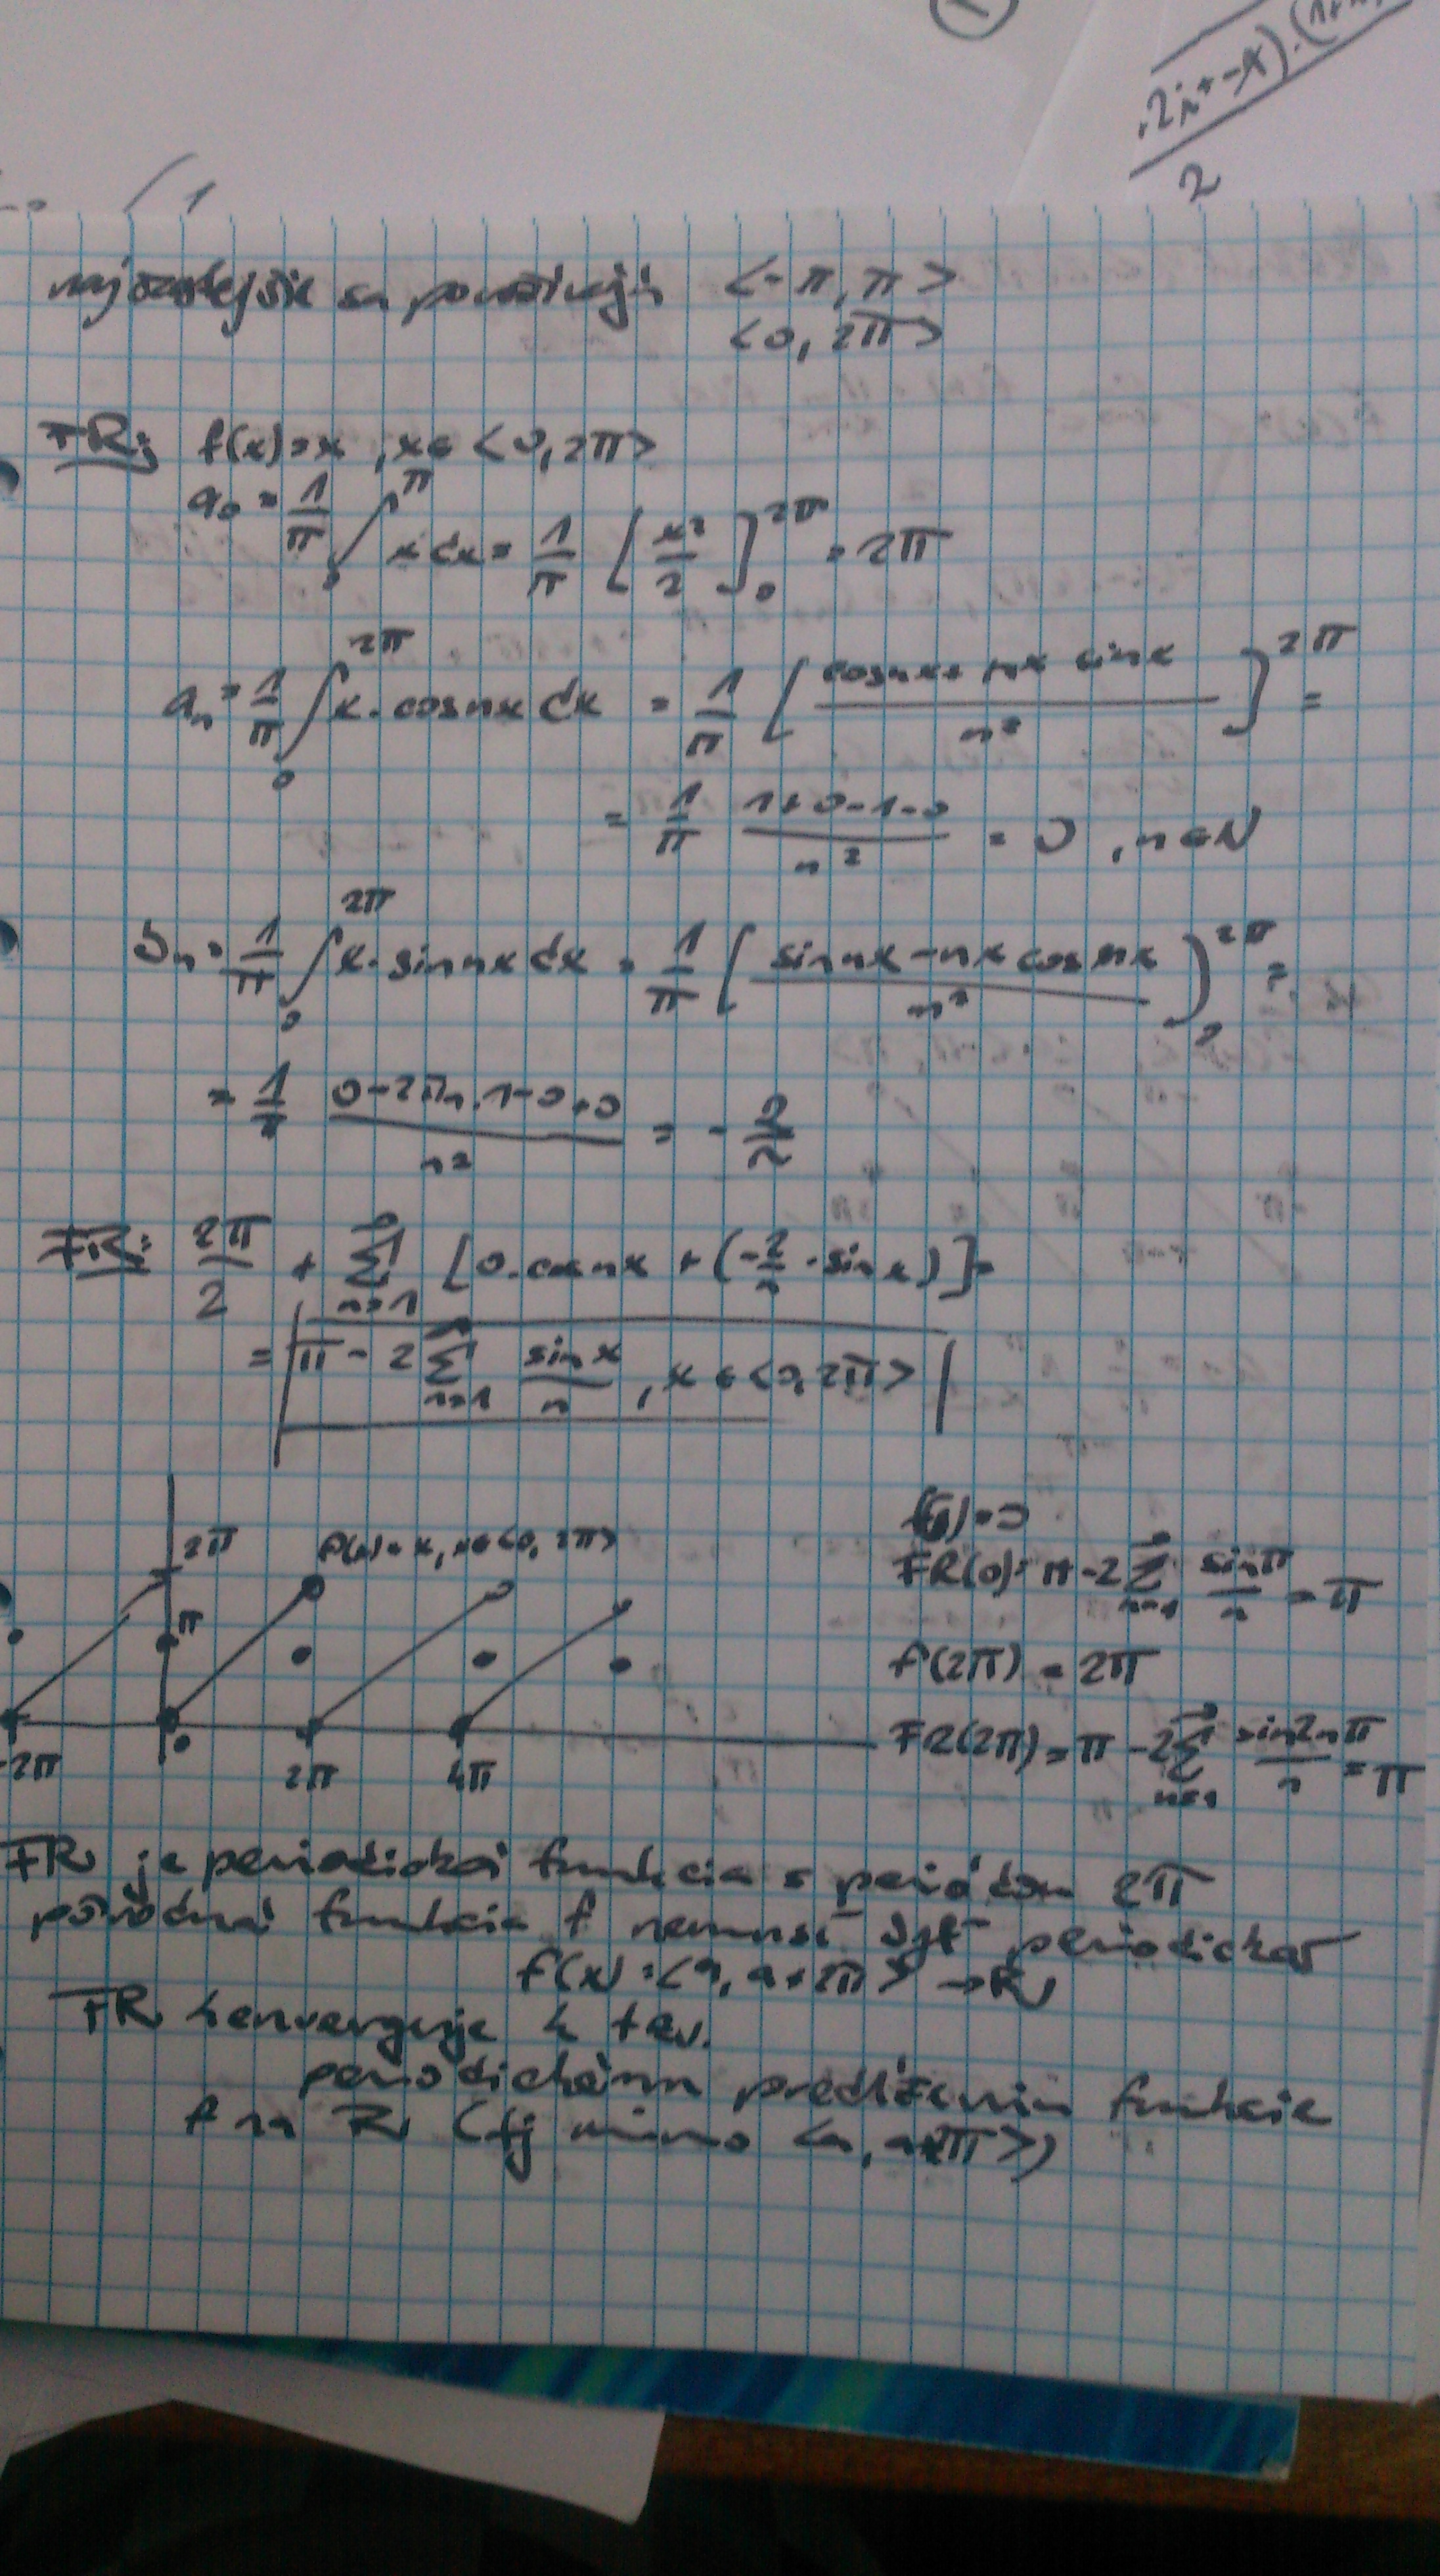 najčastejšie sa používajú <-π, π>
<0, 2π>
FR: f(x)=x, x∈<0, 2π>
a₀ = 1/π ∫₀^π x dx = 1/π [x²/2]₀^2π = 2π
aₙ = 1/π ∫₀^2π x·cosnx dx = 1/π [(cosnx + nx sinx)/n²]^2π =
= 1/π (1+0-1-0)/n² = 0, n∈N
bₙ = 1/π ∫₀^2π x·sinnx dx = 1/π [(sinnx - nx cosnx)/n²]₀^2π =
= 1/π (0-2πn·1-0+0)/n² = -2/n
FR: 2π/2 + ∑_{n=1}^∞ [0·cosnx + (-2/n · sinx)] =
= π - 2∑_{n=1}^∞ sinx/n, x∈<0, 2π>
2π
f(x)=x, x∈<0, 2π>
π
-2π 0 2π 4π
f(0)=0
FR(0)=π-2∑_{n=1}^∞ sinπ/n = π
f(2π) = 2π
FR(2π) = π - 2∑_{n=1}^∞ sin2nπ/n = π
FR je periodická funkcia s periódou 2π
pôvodná funkcia f nemusí byť periodická
f(x) = <a, a+2π> → R
FR konverguje k tzv.
periodickém predĺžením funkcie
f na R (aj mimo <a, a+2π>)
2